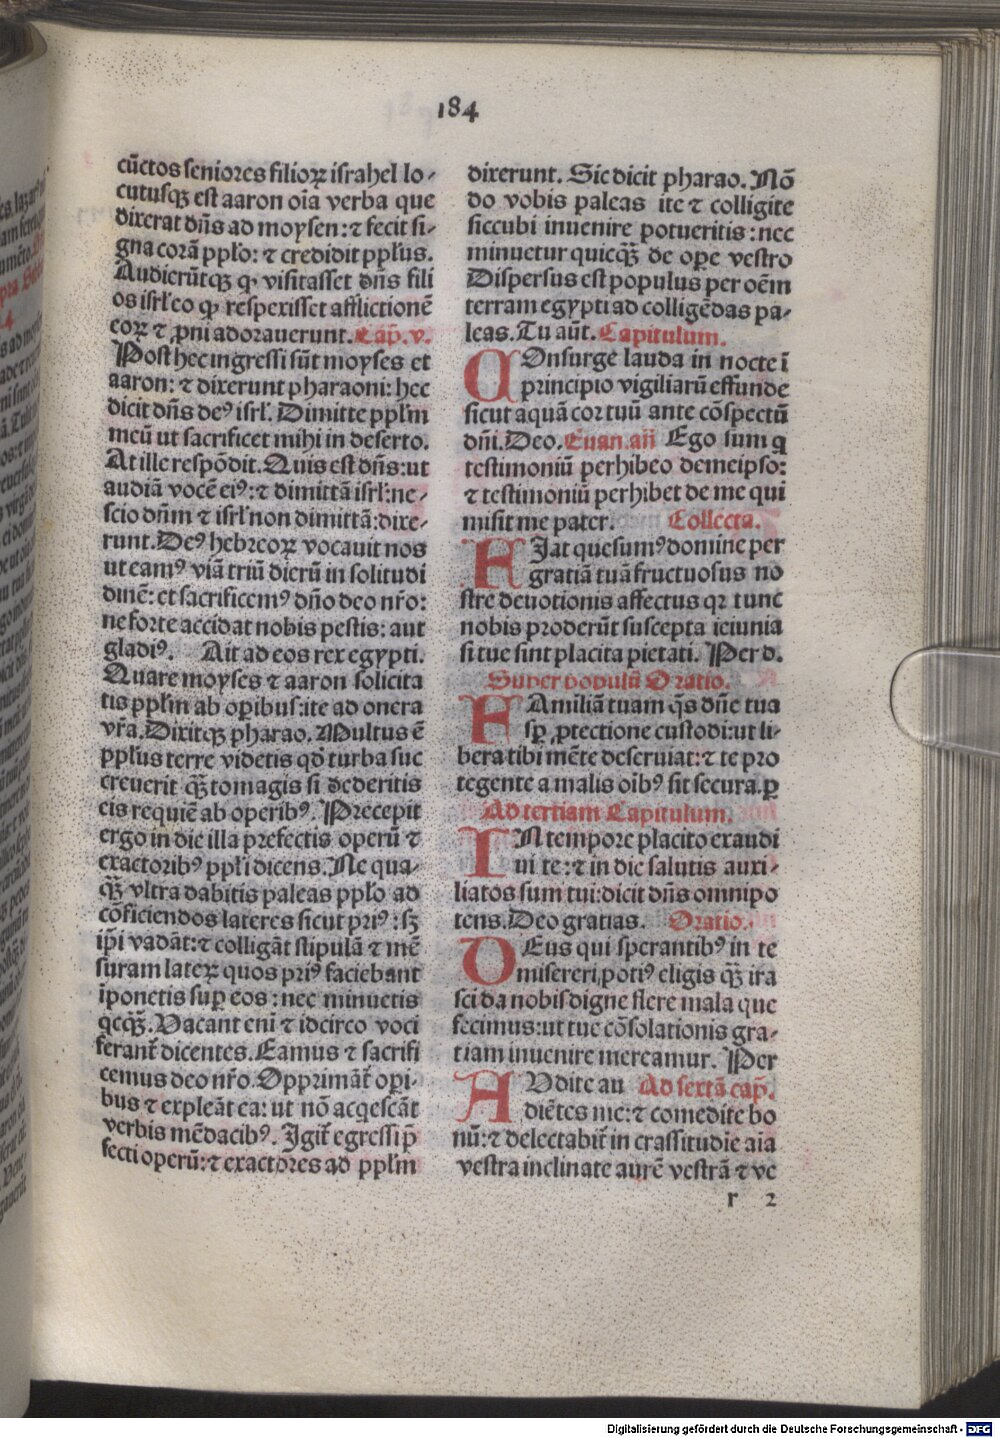 184
cūctos seniores filioꝝ israhel lo-
cutusqꝫ est aaron oīa verba que
dixerat dn̄s ad moysen: ⁊ fecit si-
gna corā pp̄lo: ⁊ credidit pp̄lus.
Audierūtqꝫ ꝙ visitasset dn̄s fili
os isrl̓ eo ꝙ respexisset afflictionē
eoꝝ ⁊ ꝓni adorauerunt. Cap̄. v.
Post hec ingressi sūt moyses et
aaron: ⁊ dixerunt pharaoni: hec
dicit dn̄s deꝰ isrl̓. Dimitte pp̄lm
meū ut sacrificet mihi in deserto.
At ille respōdit. Quis est dn̄s: ut
audiā vocē eiꝰ: ⁊ dimittā isrl̓: ne-
scio dn̄m ⁊ isrl̓ non dimittā: dixe-
runt. Deꝰ hebreoꝝ vocauit nos
ut eamꝰ viā triū dierū in solitudi
dinē: et sacrificemꝰ dn̄o deo nr̄o:
ne forte accidat nobis pestis: aut
gladiꝰ. Ait ad eos rex egypti.
Quare moyses ⁊ aaron solicita
tis pp̄lm ab oꝑibus: ite ad onera
vr̄a. Dixitqꝫ pharao. Multus ē
pp̄lus terre videtis qd̓ turba suc
creuerit qꝫ̄ tomagis si dederitis
eis requiē ab operibꝰ. Precepit
ergo in die illa prefectis operū ⁊
exactoribꝰ pp̄li dicens. Ne qua-
qꝫ̄ vltra dabitis paleas pp̄lo ad
cōficiendos lateres sicut priꝰ: sꝫ
ip̄i vadāt: ⁊ colligāt stipulā ⁊ mē
suram lateꝝ quos priꝰ faciebant
īponetis suꝑ eos: nec minuetis
qcqꝫ̄. Vacant enī ⁊ idcirco voci
ferant̄ dicentes. Eamus ⁊ sacrifi
cemus deo nr̄o. Opprimāt̄ oꝑi-
bus ⁊ expleāt ea: ut nō acqescāt
verbis mēdacibꝰ. Igit̄ egressi p̄
fecti operū: ⁊ exactores ad pp̄lm
dixerunt. Sic dicit pharao. Nō
do vobis paleas ite ⁊ colligite
siccubi inuenire potueritis: nec
minuetur quicqꝫ̄ de oꝑe vestro
Dispersus est populus per oēm
terram egypti ad colligēdas pa-
leas. Tu aūt. Capitulum.
COnsurge lauda in nocte ī
principio vigiliarū effunde
sicut aquā cor tuū ante cōspectū
dn̄i. Deo. Euan. an̄ Ego sum q
testimoniū perhibeo de meipso:
⁊ testimoniū perhibet de me qui
misit me pater. Collecta.
FIat quesumꝰ domine per
gratiā tuā fructuosus no
stre deuotionis affectus qꝛ tunc
nobis proderūt suscepta ieiunia
si tue sint placita pietati. Per d.
Super populū Oratio.
FAmiliā tuam qs̄ dn̄e tua
sꝑ ꝓtectione custodi: ut li-
bera tibi mēte deseruiat: ⁊ te pro
tegente a malis oībꝰ sit secura. ꝑ
Ad tertiam Capitulum.
IN tempore placito exaudi
ui te: ⁊ in die salutis auxi-
liatos sum tui: dicit dn̄s omnipo
tens. Deo gratias. Oratio.
DEus qui sperantibꝰ in te
misereri potiꝰ eligis qꝫ̄ ira
sci da nobis digne flere mala que
fecimus: ut tue cōsolationis gra-
tiam inuenire mereamur. Per
AUdite au Ad sextā cap̄.
diētes me: ⁊ comedite bo
nū: ⁊ delectabit̄ in crassitudie aīa
vestra inclinate aurē vestrā ⁊ ve
r 2
Digitalisierung gefördert durch die Deutsche Forschungsgemeinschaft - DFG